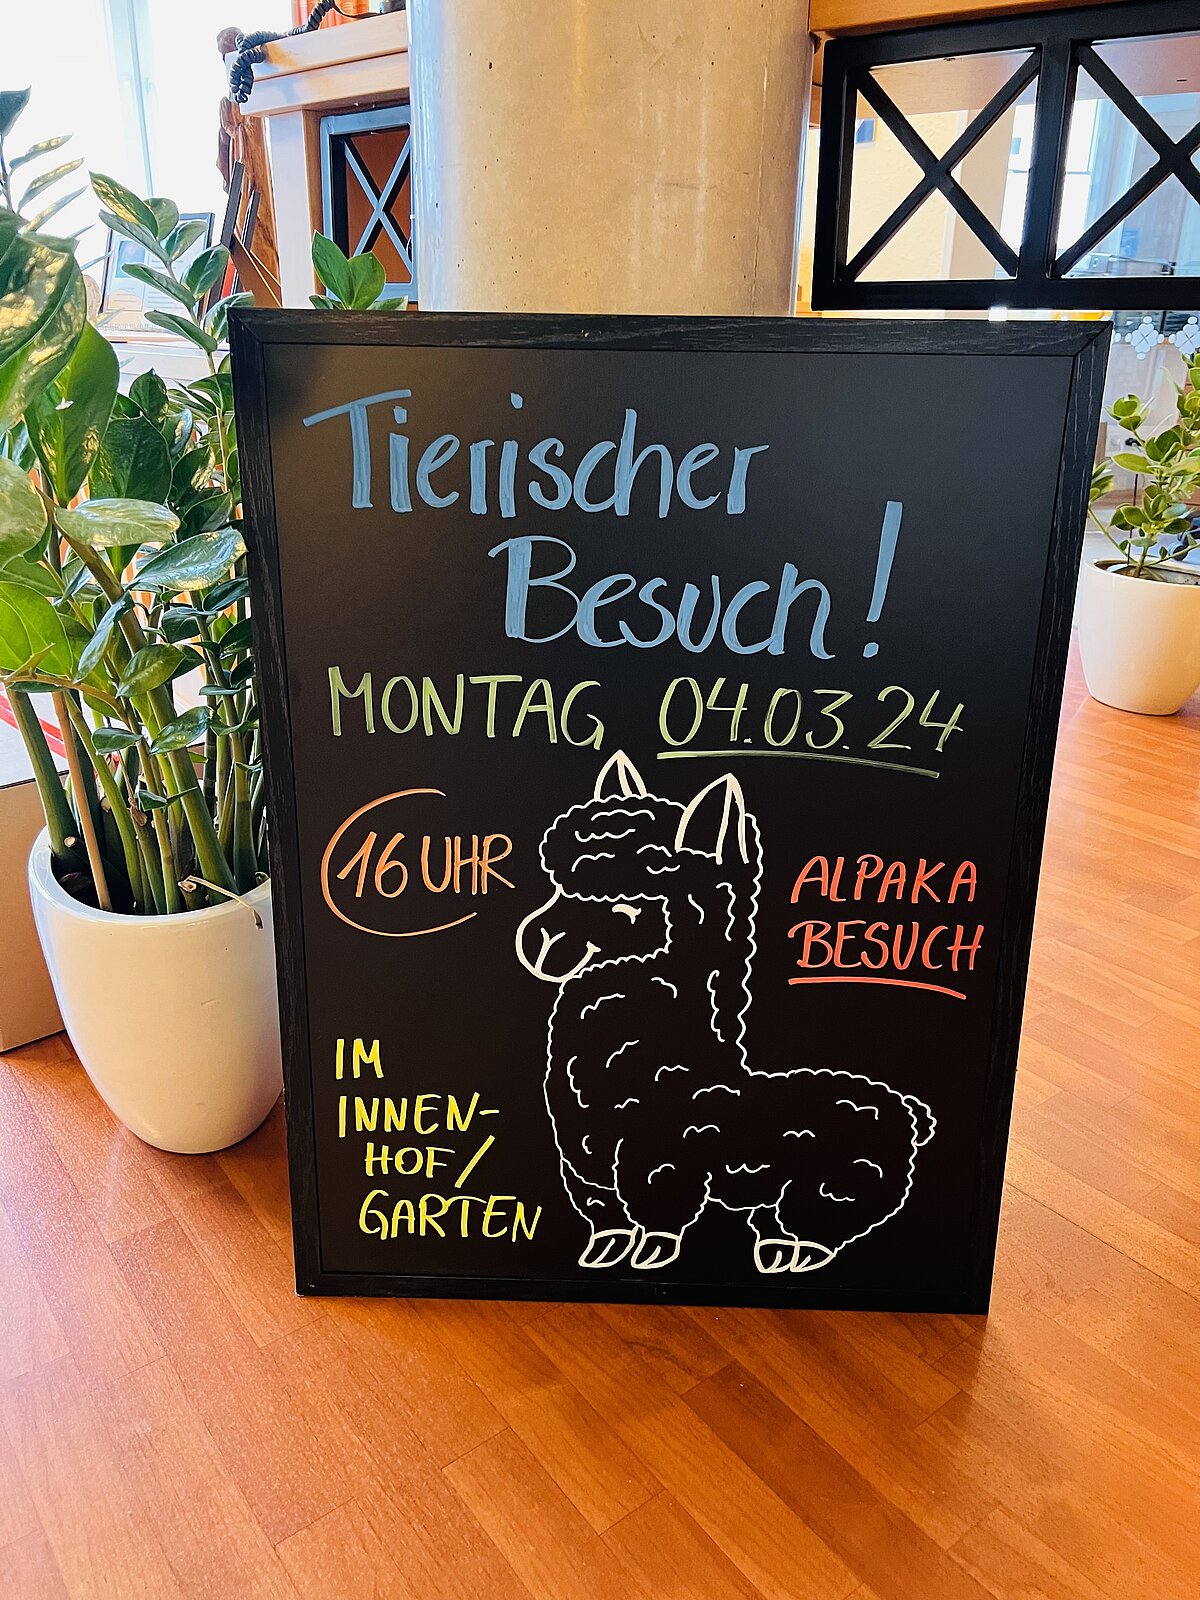 Tierischer
Besuch!
MONTAG 04.03.24
16 UHR
ALPAKA
BESUCH
IM
INNEN-
HOF/
GARTEN